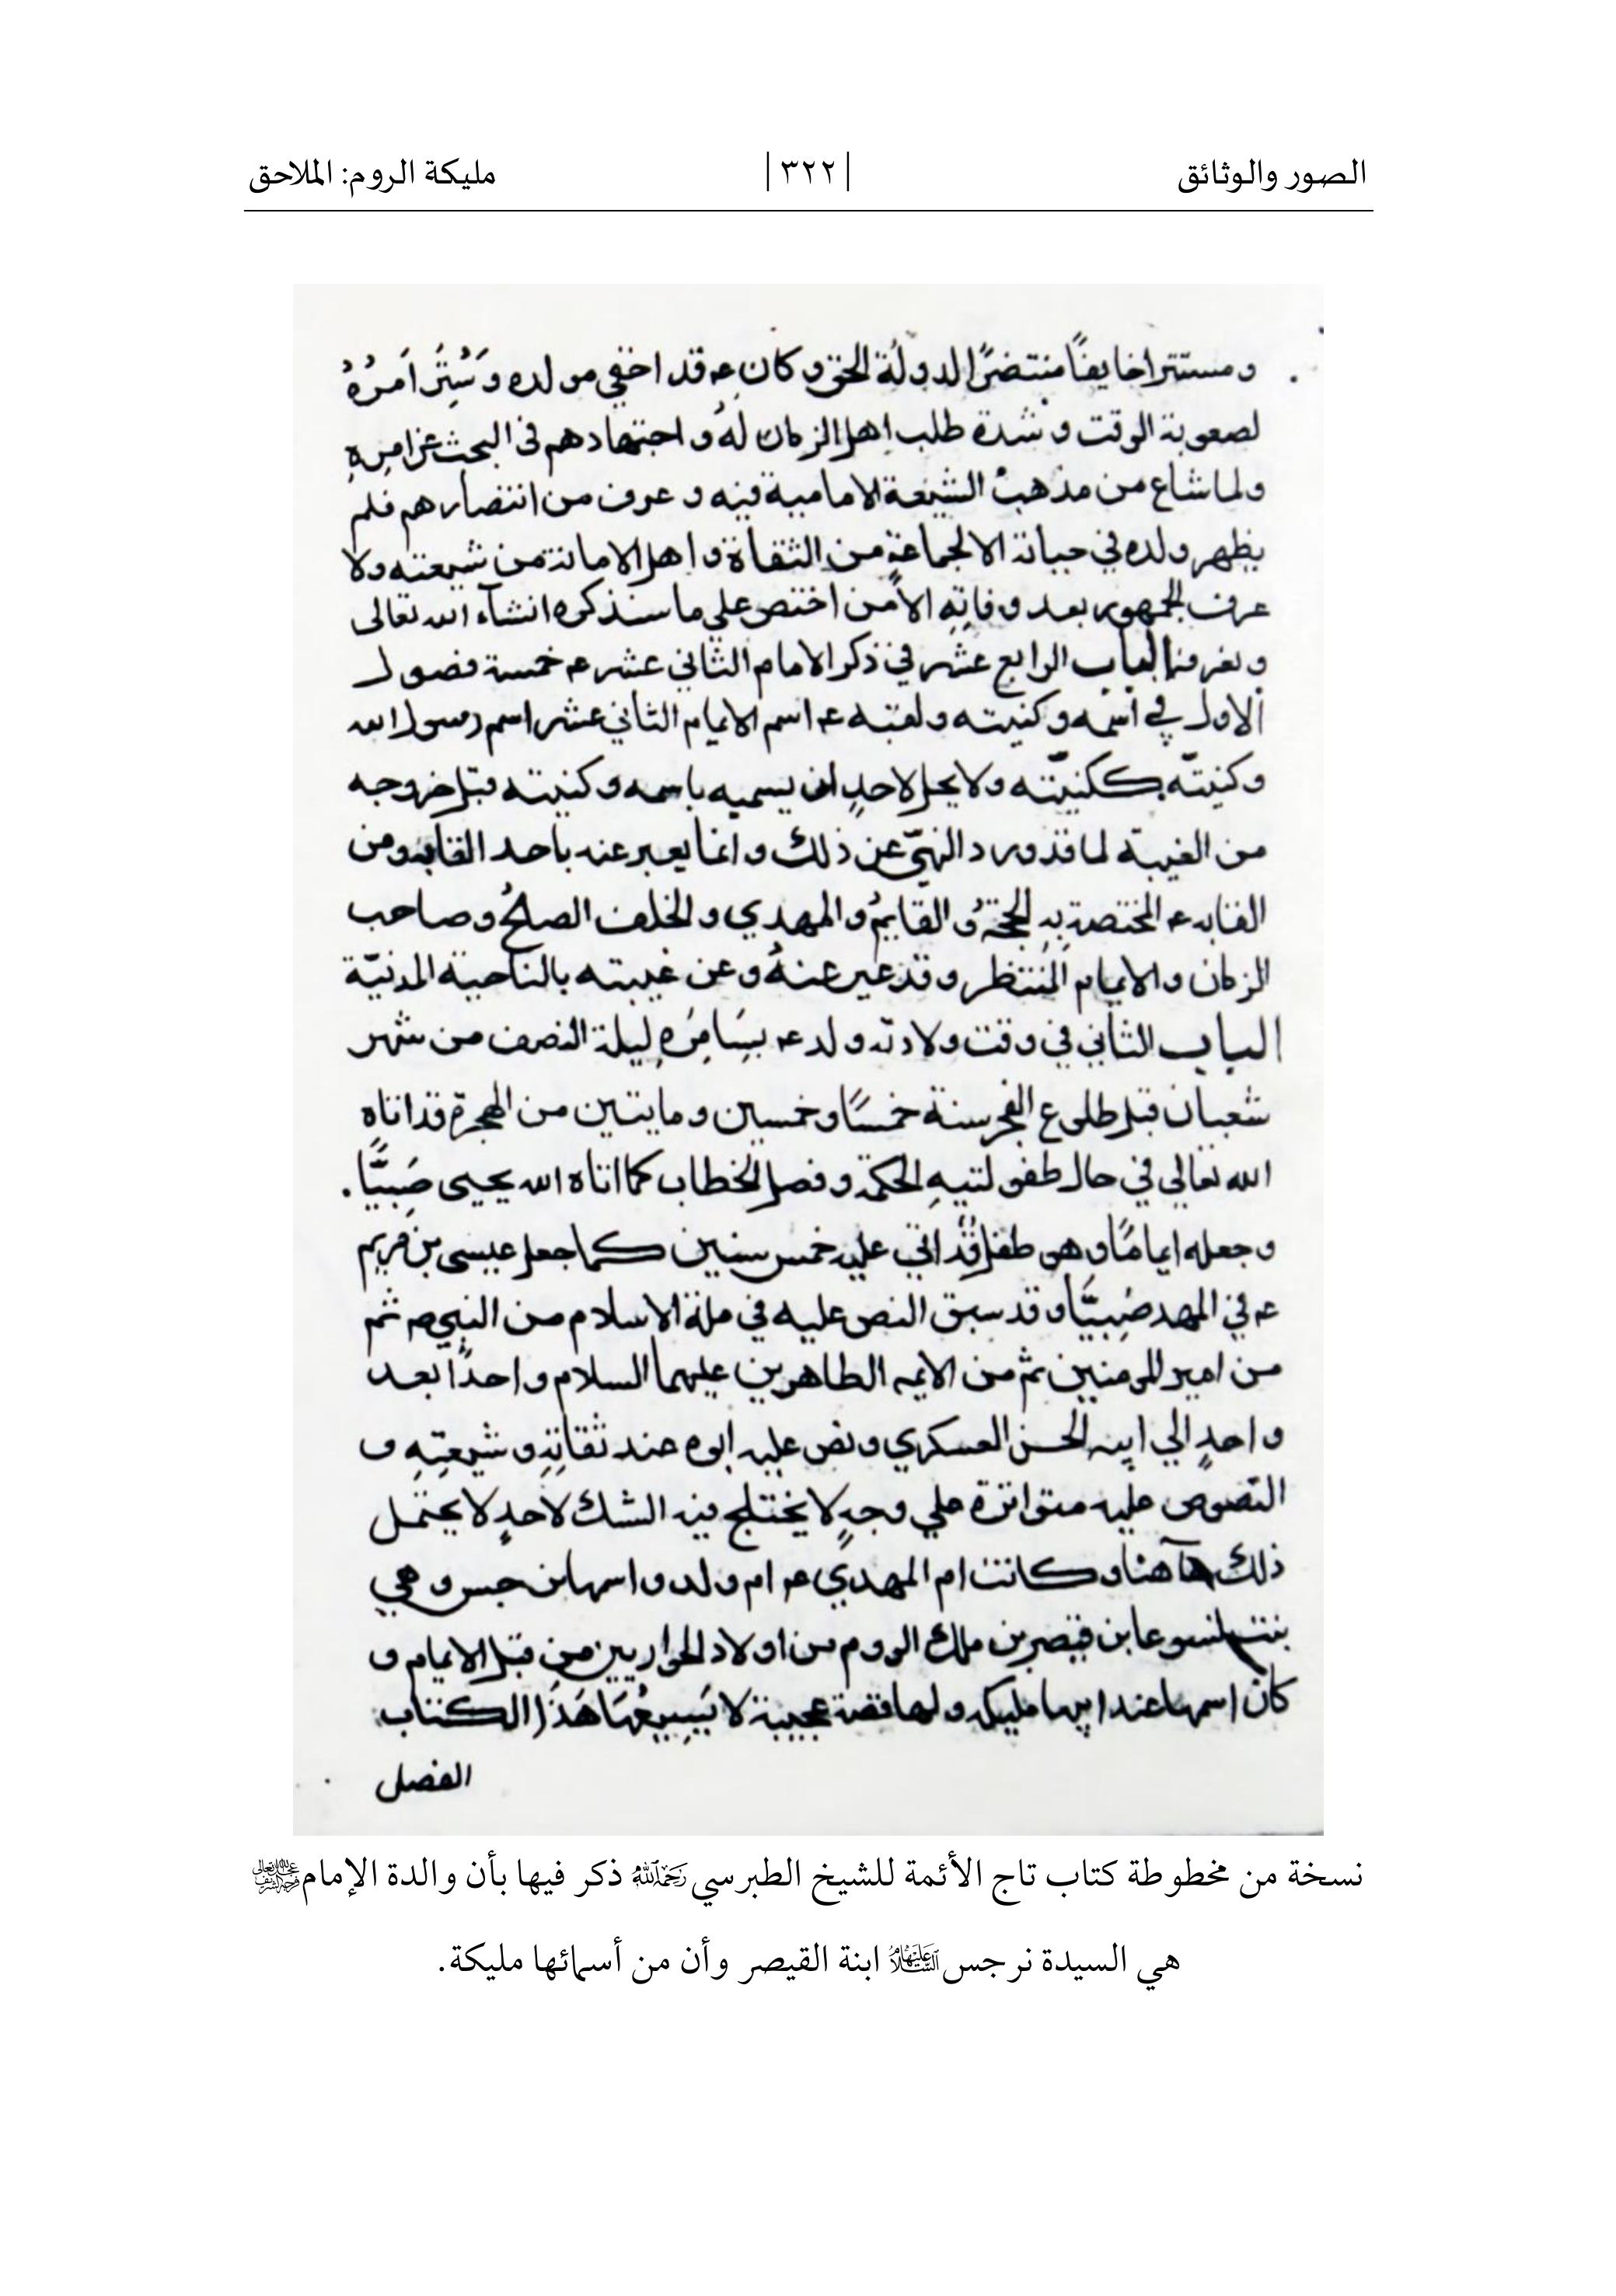 الصور والوثائق | ٣٢٢ | مليكة الروم: الملاحق
ومستترا خايفًا منتضرًا لدولة الحق وكان عه قد اخفي مولده وسُتِرَ امرُهُ
لصعوبة الوقت وشدة طلب اهل الزمان لهُ واجتهادهم في البحث عن امرِهِ
ولما شاع من مذهب الشيعة الامامية فيه وعرف من انتضارهم فلم
يظهر ولده في حياته الا لجماعةٍ من الثقاة واهل الامانة من شيعته ولا
عرف الجمهور بعد وفاتِهِ الا من اختص علي ما سنذكره انشآء الله تعالى
الباب الرابع عشر في ذكر الامام الثاني عشر عه خمسة فصول
الاول في اسمه وكنيته ولقبه عه اسم الامام الثاني عشر اسم رسول الله
وكنيتّه ككنيّته ولا يحل لاحدٍ ان يسميه باسمه وكنيته قبل خروجه
من الغيبة لما قد ورد النهيّ عن ذلك وانما يعبر عنه باحد القابه ومن
القابه عه المختصة بِهِ الحجةُ والقايمُ والمهدي والخلف الصالحُ وصاحب
الزمان والامام المُنتظر وقد عبر عنهُ وعن غيبته بالناحية
الباب الثاني في وقت ولادته ولد عه بسَامِرَهِ ليلة النصف من شهر
شعبان قبل طلوع الفجر سنة خمسًا وخمسين ومايتين من الهجرة قد اتاه
الله تعالي في حال طفولتيهِ الحكمة وفصل الخطاب كما اتاه الله يحيى صَبِيًّا.
وجعله امامًا وهو طفل قد اتي عليه خمس سنين كما جعل عيسى بن مريم
عه في المهد صَبِيًّا وقد سبق النص عليه في ملة الاسلام من النبي ص ثم
من امير المومنين ثم من الايمه الطاهرين عليهما السلام واحدًا بعد
واحدٍ الي ابيه الحسن العسكري ونص عليه ابوه عند ثقاتِهِ وشيعتِهِ و
النصوص عليه متواترة علي وجهٍ لا يختلج فيه الشك لاحدٍ لا يحتمل
ذلك هآهنا وكانت ام المهدي عه ام ولد واسمها نرجس وهي
بنت يسوعا بن قيصر بن ملك الروم من اولاد الحواريين من قبل الامام و
كان اسمها عند ابيها مليكه ولها قصة عجيبة لا يَسِيعُهَا هَذَا الكتاب
الفصل
نسخة من مخطوطة كتاب تاج الأئمة للشيخ الطبرسي رحمه الله ذكر فيها بأن والدة الإمام
هي السيدة نرجس عليها السلام ابنة القيصر وأن من أسمائها مليكة.